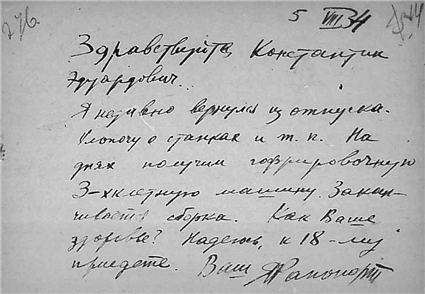 276. 5 VIII 34
Здравствуйте, Константин
Эдуардович.
Я недавно вернулся из отпуска.
Хлопочу о станках и т. п. На
днях получим гофрировочную
3-хклетную машину. Закан-
чивается сборка. Как Ваше
здоровье? Надеюсь, к 18-му
приедете. Ваш Рапопорт